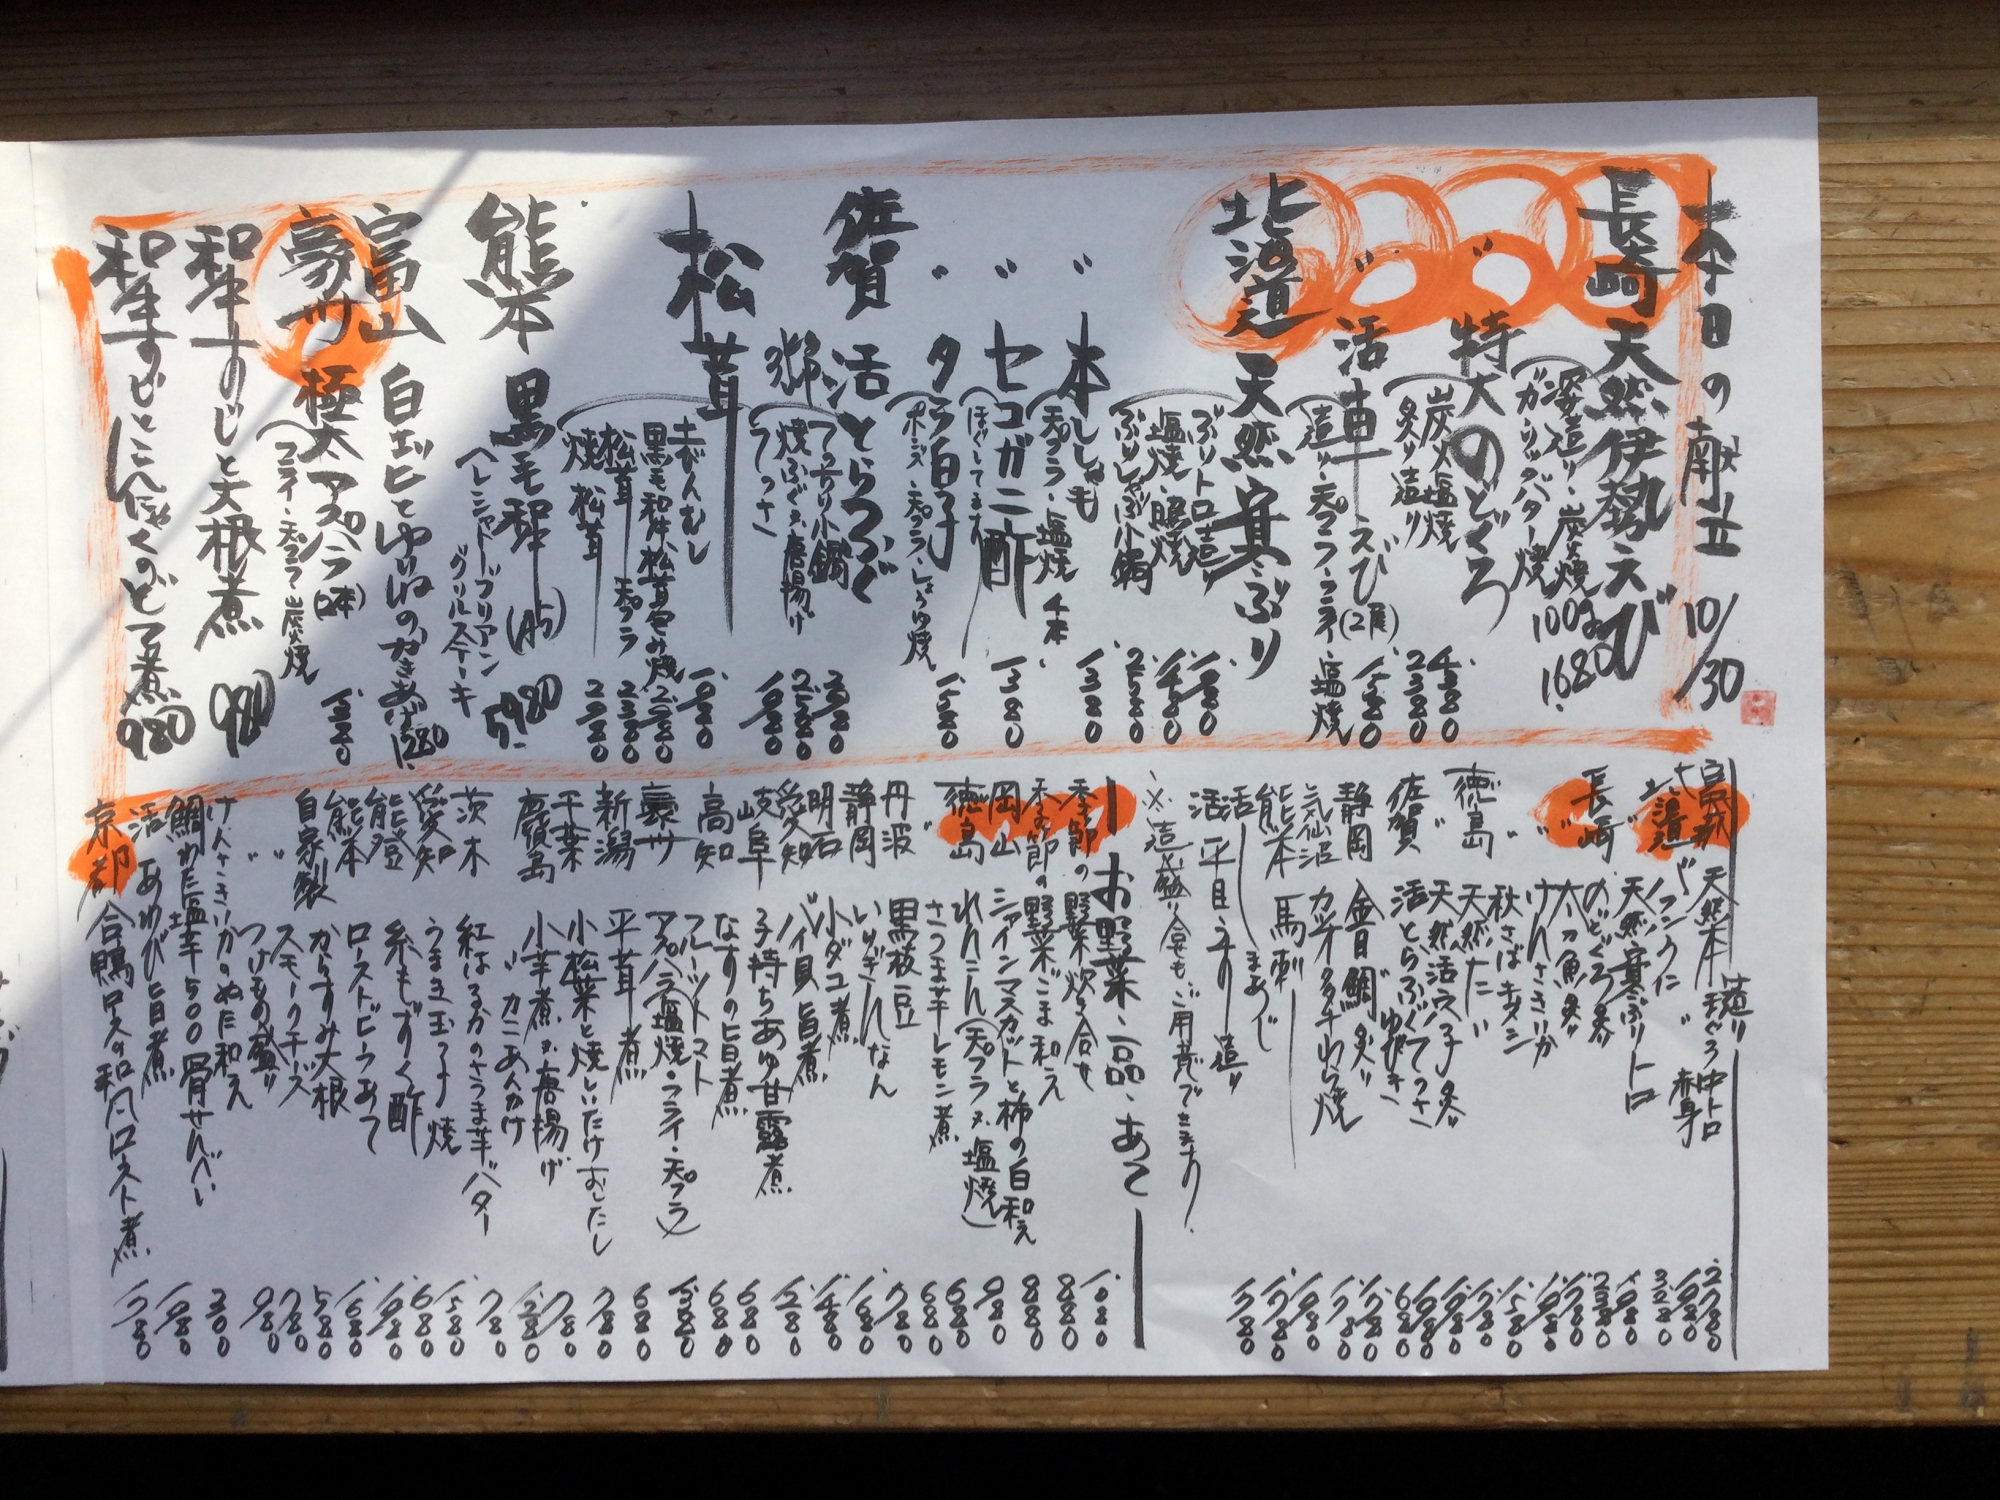 本日の献立 10/30
長崎 天然伊勢えび
(姿造り・炭火焼 100g 1.680
ガーリックバター焼
〃 特大のどぐろ
(炭火塩焼 4.380
炙り造り 2.380
〃 活車えび(2尾) 1.580
(造り・天プラ・フライ・塩焼
北海道 天然寒ぶり
(ぶりトロ造り 1.980
塩焼・照焼 1.480
ぶりしゃぶ小鍋 2.580
〃 本ししゃも 1.380
(天プラ・塩焼 4本
〃 セコガニ酢 1.380
(ほぐしてます)
〃 タラ白子 1.580
(ポンズ・天プラ・しょうゆ焼
佐賀 活とらふぐ
(てっちり小鍋
焼ふぐ又唐揚げ 2.580
てっさ 1.980
松茸
(土びんむし 1.080
黒毛和牛松茸包み焼
松茸天プラ 2.380
焼松茸
熊本 黒毛和牛(A5) 5.980
(ヘレシャトーブリアン
グリルステーキ
富山 白エビとゆりねのかきあげ 1.280
豪州 極太アスパラ(2本) 1.380
(フライ・天プラ・炭火焼
和牛すじと大根煮 980
和牛すじとこんにゃくのどて煮 980
造り
天然本まぐろ中トロ 2.780
〃 〃 赤身 1.980
北海道 バフンうに 3.280
〃 天然寒ぶりトロ 1.980
長崎 のどぐろ炙り 2.380
〃 太刀魚炙り 1.780
〃 けんさきいか
〃 秋さばキズシ 1.580
徳島 天然たい 1.780
〃 天然活穴子炙り 1.980
佐賀 活とらふぐてっさ 1.980
〃 〃 ゆびき 680
静岡 金目鯛炙り 1.780
気仙沼 カツオタタキわら焼 1.780
熊本 馬刺し 1.980
活〆まあじ 1.780
活〆平目うす造り 1.780
※造り盛り合せもご用意できます。
お野菜・一品・あて
季節の野菜炊き合せ 1.080
季節の野菜ごま和え 880
岡山 シャインマスカットと柿の白和え 880
徳島 れんこん(天プラ又塩焼) 980
〃 さつま芋レモン煮 680
丹波 黒枝豆 680
〃 いりぎんなん 780
静岡 小ダコ煮 1.680
明石 バイ貝旨煮 1.480
愛知 子持ちあゆ甘露煮 1.280
岐阜 なすの旨煮 680
高知 フルーツトマト 680
豪州 アスパラ(塩焼・フライ・天プラ)
新潟 平茸煮 680
千葉 小松菜と焼しいたけおしたし 780
鹿児島 小芋煮又唐揚げ 780
〃 〃 カニあんかけ 1.280
茨木 紅はるかのさつま芋バター 780
愛知 うまき玉子焼 1.580
能登 糸もずく酢 680
熊本 ローストビーフあて 1.980
自家製 からすみ大根 1.680
〃 スモークチーズ 580
〃 つけもの盛り 780
けんさきいかのぬた和え 980
鯛わた塩辛500骨せんべい 300
活あわび旨煮 1.980
京都 合鴨ロースの和風ロースト煮 1.780